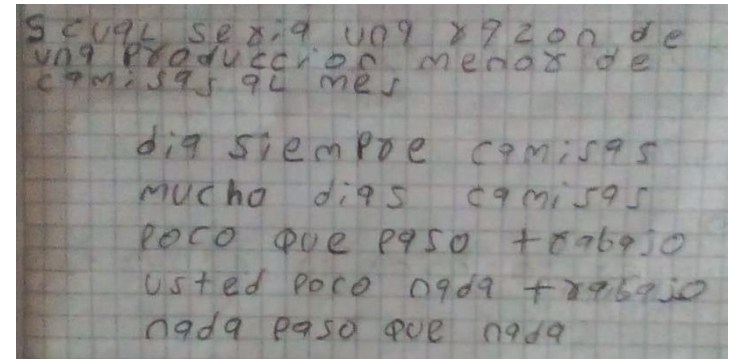 5 cual seria una razon de
una produccion menor de
camisas al mes
dia siempre camisas
mucho dias camisas
poco que paso trabajo
usted poco nada trabajo
nada paso que nada